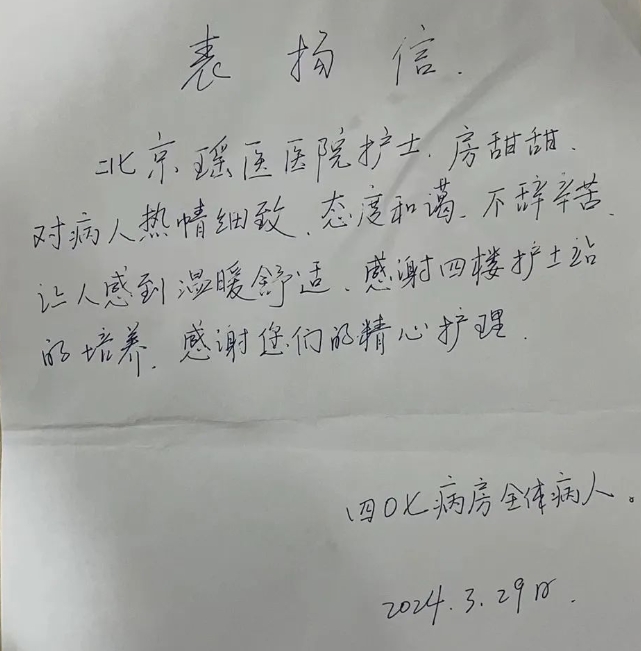 表扬信.
北京瑶医医院护士、房甜甜、
对病人热情细致、态度和谒、不辞辛苦、
让人感到温暖舒适、感谢四楼护士站
的培养、感谢您们的精心护理.
四0七病房全体病人。
2024.3.29日.